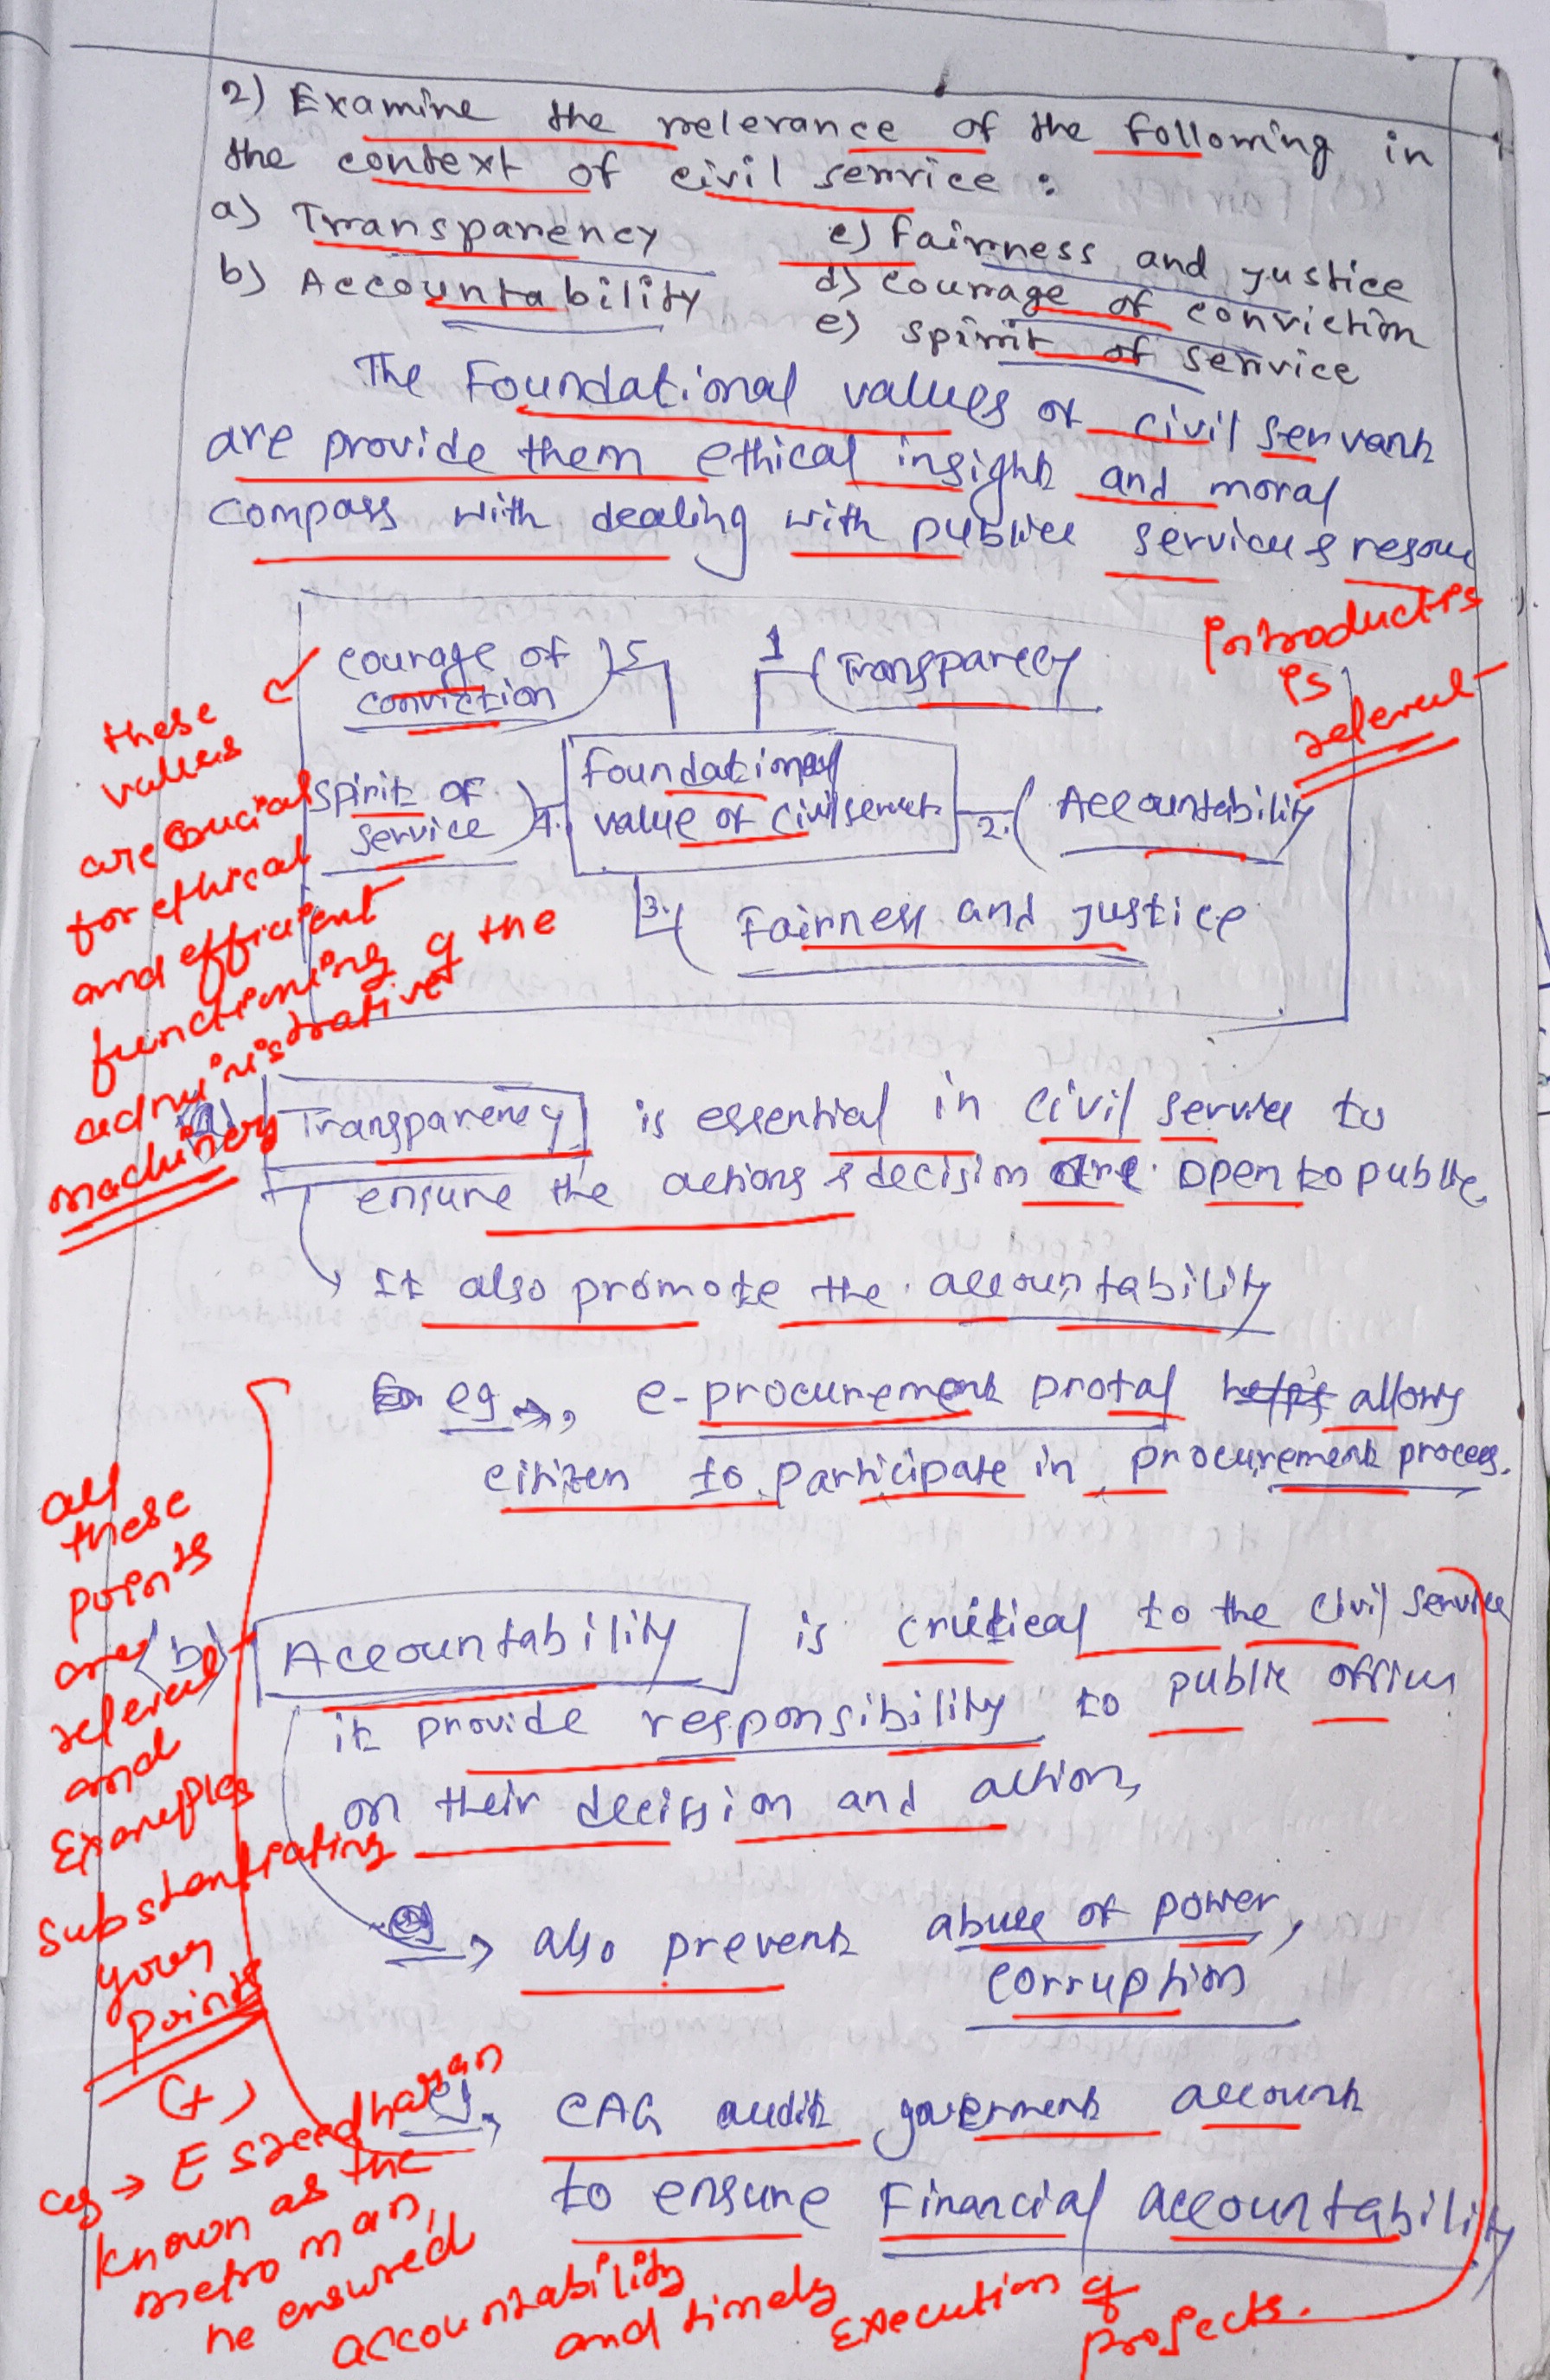 2) Examine the relevance of the following in
the context of civil service :
a) Transparency
b) Accountability
c) fairness and justice
d) courage of conviction
e) spirit of service
The Foundational values of civil servant
are provide them ethical insight and moral
compass with dealing with publice services & resou
Introduction
is
relevent
courage of
conviction
5
1
Transparecy
Spirit of
service
4.
foundational
value of civil servant
2.
Accountability
3.
Fairness and justice
these
values
are crucial
for ethical
and efficient
functioning of the
administrative
machinery
(a) Transparency is essential in civil service to
ensure the actions & decision are open to public
It also promote the accountability
eg → e-procurement protal helps allows
citizen to participate in procurement process.
all
these
points
are
relevent
and
Examples
substantiating
your
points
(+)
eg → E sreedharan
known as the
metro man,
he ensured
accountability
and timely
execution of
projects.
(b) Accountability is critical to the civil service
it provide responsibility to public offices
on their decission and action,
eg → also prevent abuse of power,
corruption
eg, CAG audit government account
to ensure Financial accountability